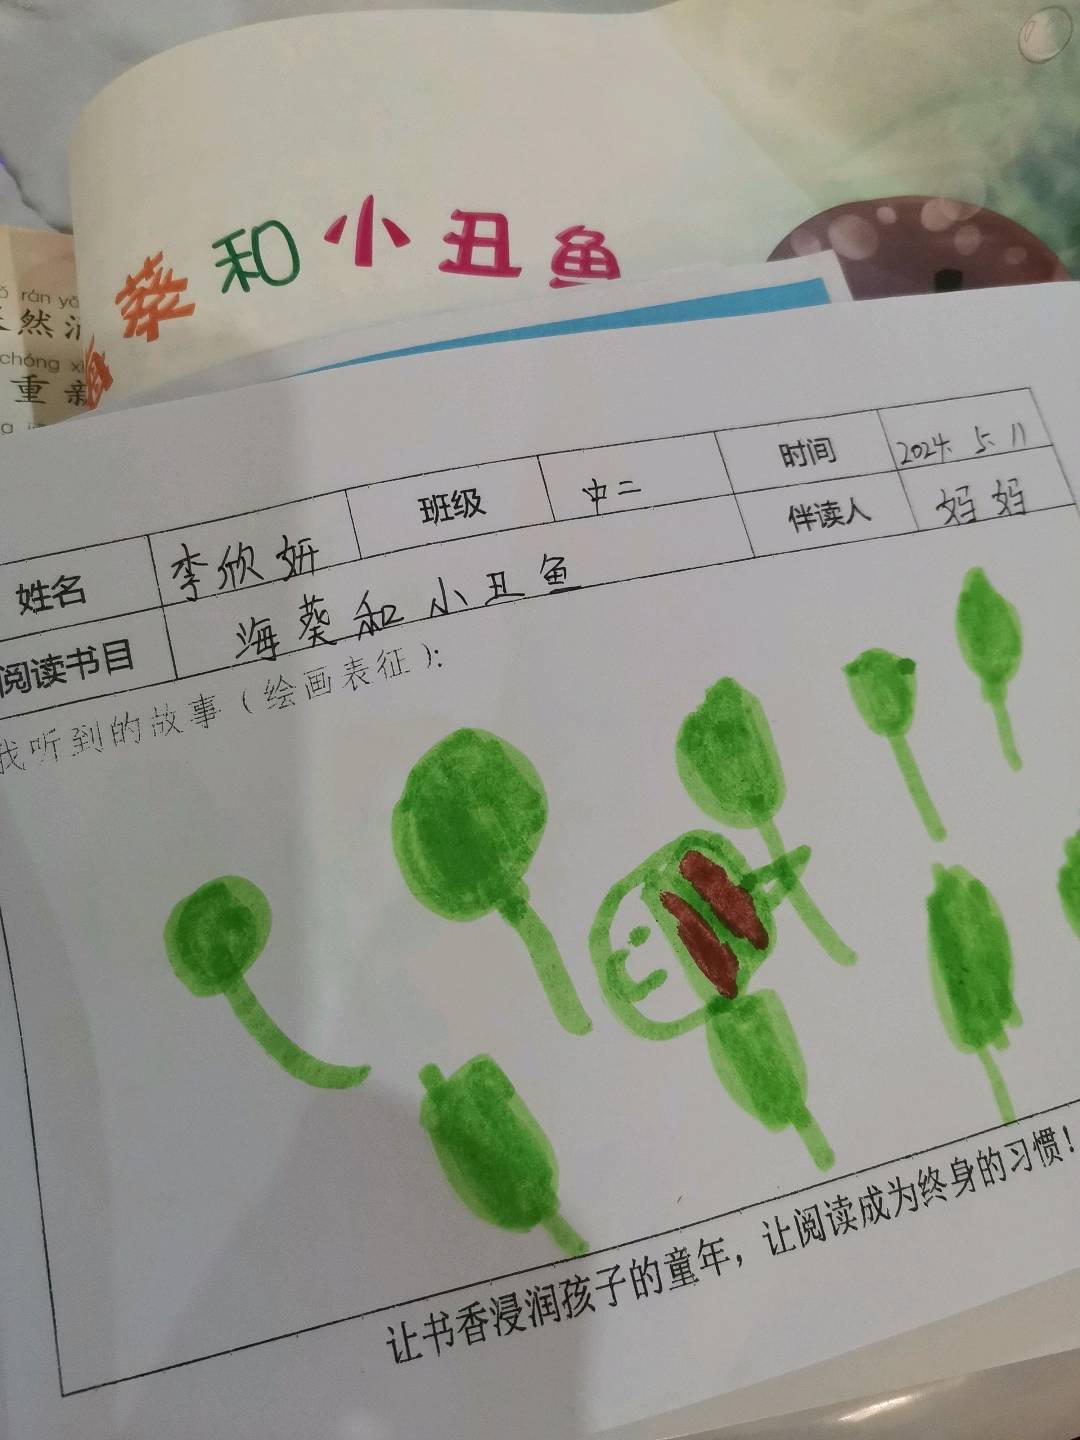 葵和小丑鱼
rán
然
chóng
重新
姓名 李欣妍 班级 中二 时间 2024.5.11
阅读书目 海葵和小丑鱼 伴读人 妈妈
我听到的故事（绘画表征）：
让书香浸润孩子的童年，让阅读成为终身的习惯！